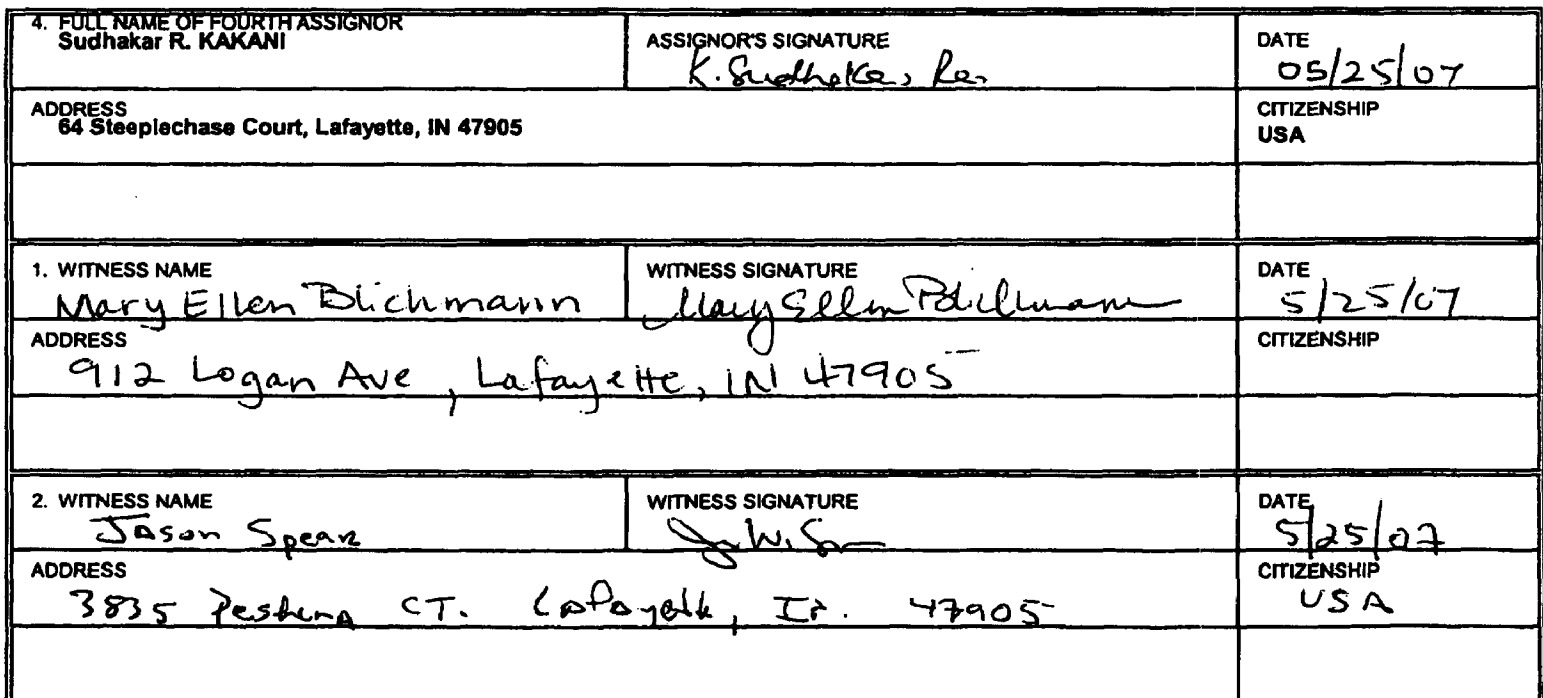 4. FULL NAME OF FOURTH ASSIGNOR
Sudhakar R. KAKANI
ASSIGNOR'S SIGNATURE
K. Sudhakar
DATE
05/25/07
ADDRESS
64 Steeplechase Court, Lafayette, IN 47905
CITIZENSHIP
USA
1. WITNESS NAME
Mary Ellen Blichmann
WITNESS SIGNATURE
Mary Ellen Blichmann
DATE
5/25/07
ADDRESS
912 Logan Ave, Lafayette, IN 47905
CITIZENSHIP
2. WITNESS NAME
Jason Spear
WITNESS SIGNATURE
DATE
5/25/07
ADDRESS
3835 CT. Lafayette, In. 47905
CITIZENSHIP
USA